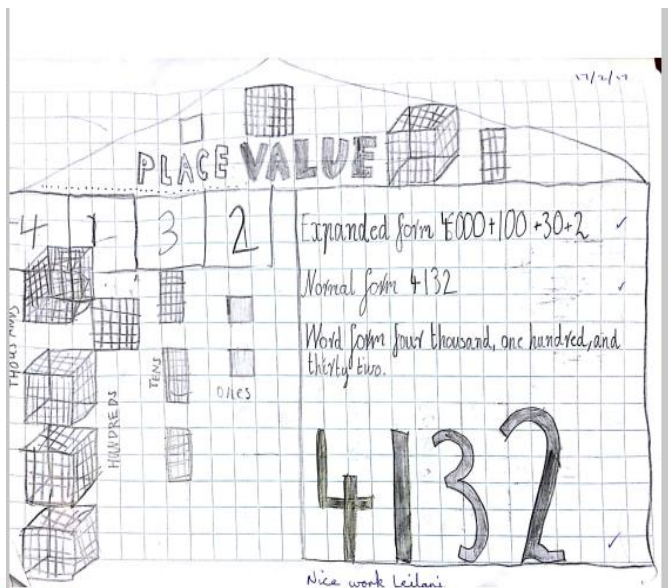 17/2/17
PLACE VALUE
4 1 3 2
THOUSANDS
HUNDREDS
TENS
ones
Expanded form 4000+100+30+2
Normal form 4132
Word form four thousand, one hundred, and
thirty two.
4132
Nice work Leilani